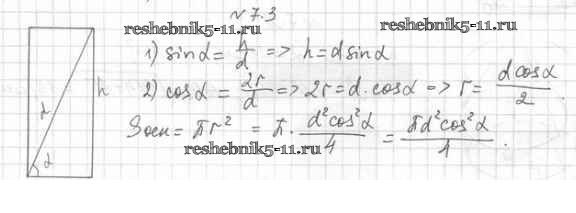 №7.3
reshebnik5-11.ru
reshebnik5-11.ru
1) sinα = h/d => h = d sinα
2) cosα = 2r/d => 2r = d·cosα => r = d cosα/2.
h
d
α
Sосн = πr² = π · d²cos²α/4 = πd²cos²α/4.
reshebnik5-11.ru